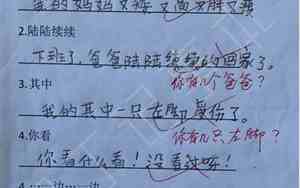 我的妈妈又矮又
2.陆陆续续
下班了,爸爸陆陆续续的回家了。
3.其中
你有几个爸爸?
我的其中一只左脚受伤了。
4.你看
你有几只左脚?
你看什么看!没看过哆!
一边……一边